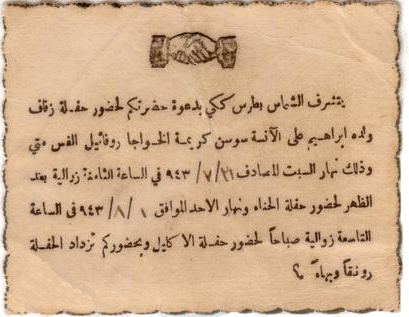 يتشرف الشماس بطرس ككي بدعوة حضرتكم لحضور حفلة زفاف
ولده ابراهيم على الآنسة سوسن كريمة الخواجا روفائيل القس متي
وذلك نهار السبت المصادف ٣١/٧/٩٤٣ في الساعة الثامنة زوالية بعد
الظهر لحضور حفلة الحناء ونهار الاحد الموافق ١/٨/٩٤٣ في الساعة
التاسعة زوالية صباحاً لحضور حفلة الاكليل وبحضوركم تزداد الحفلة
رونقاً وبهاءً ؟